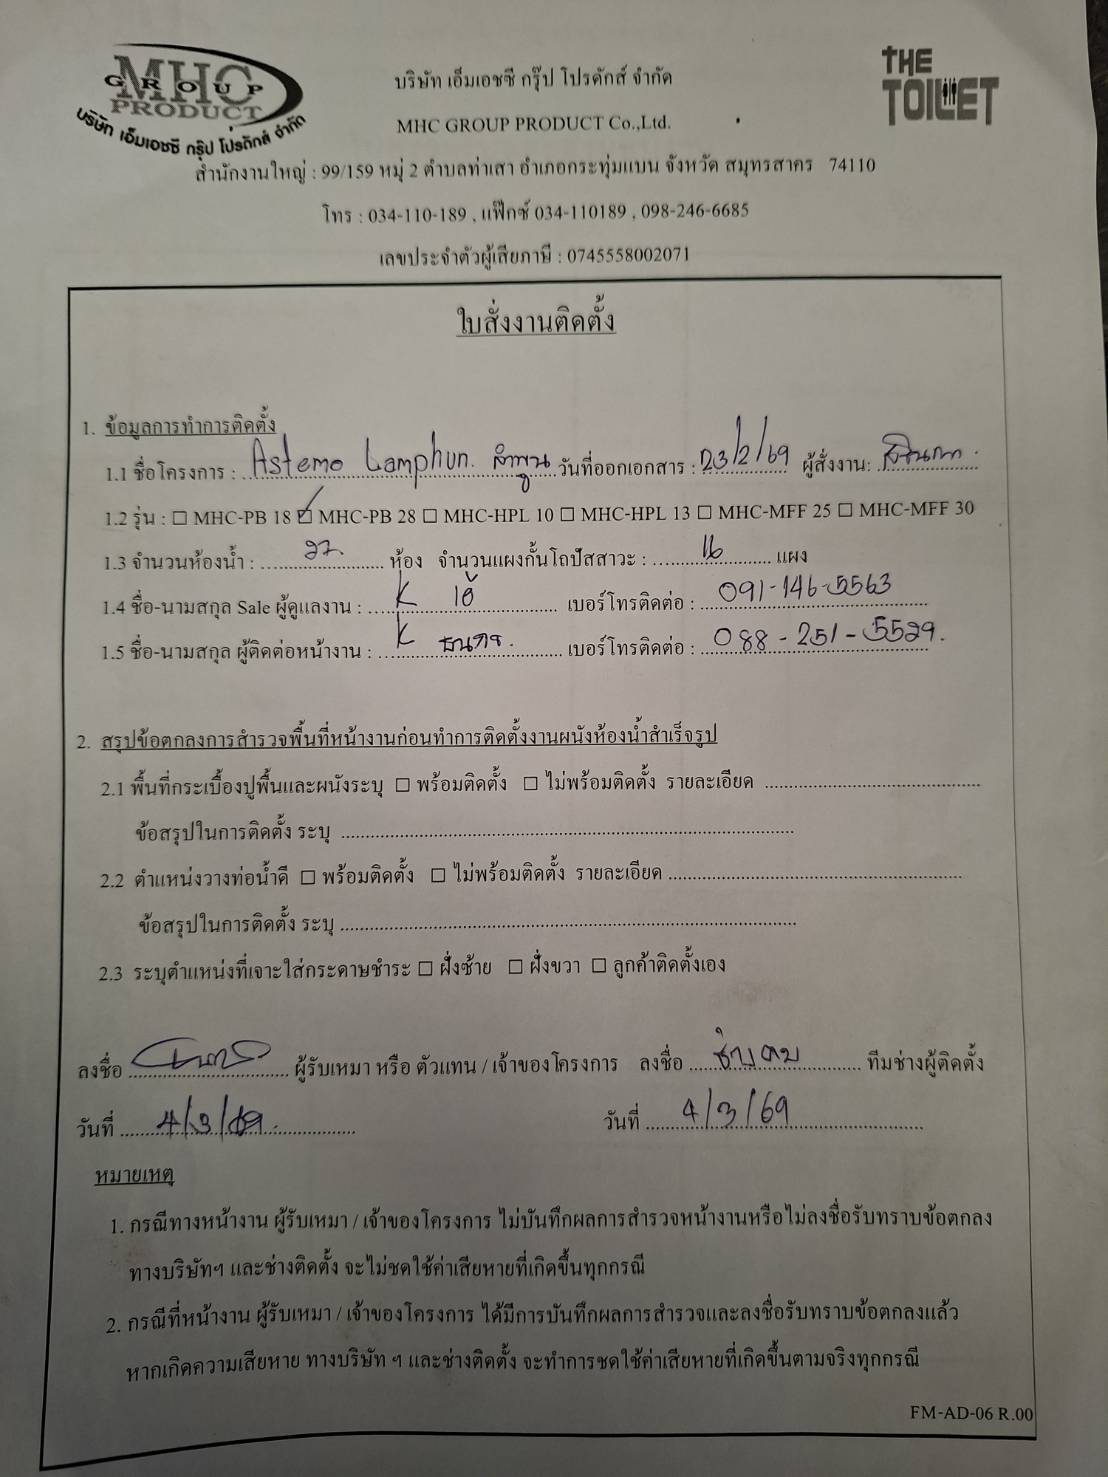 MHC
GROUP
PRODUCT
บริษัท เอ็มเอชซี กรุ๊ป โปรดักส์ จำกัด
THE
TOILET
บริษัท เอ็มเอชซี กรุ๊ป โปรดักส์ จำกัด
MHC GROUP PRODUCT Co.,Ltd.
สำนักงานใหญ่ : 99/159 หมู่ 2 ตำบลท่าเสา อำเภอกระทุ่มแบน จังหวัด สมุทรสาคร 74110
โทร : 034-110-189 , แฟ๊กซ์ 034-110189 , 098-246-6685
เลขประจำตัวผู้เสียภาษี : 0745558002071
ใบสั่งงานติดตั้ง
1. ข้อมูลการทำการติดตั้ง
1.1 ชื่อโครงการ : Astemo Lamphun. ลำพูน วันที่ออกเอกสาร : 23/2/69 ผู้สั่งงาน:
1.2 รุ่น : ☐ MHC-PB 18 ☑ MHC-PB 28 ☐ MHC-HPL 10 ☐ MHC-HPL 13 ☐ MHC-MFF 25 ☐ MHC-MFF 30
1.3 จำนวนห้องน้ำ : 27. ห้อง จำนวนแผงกั้นโถปัสสาวะ : 16 แผง
1.4 ชื่อ-นามสกุล Sale ผู้ดูแลงาน : K เบอร์โทรติดต่อ : 091-146-5563
1.5 ชื่อ-นามสกุล ผู้ติดต่อหน้างาน : K เบอร์โทรติดต่อ : 088-251-5529.
2. สรุปข้อตกลงการสำรวจพื้นที่หน้างานก่อนทำการติดตั้งงานผนังห้องน้ำสำเร็จรูป
2.1 พื้นที่กระเบื้องปูพื้นและผนังระบุ ☐ พร้อมติดตั้ง ☐ ไม่พร้อมติดตั้ง รายละเอียด
ข้อสรุปในการติดตั้ง ระบุ
2.2 ตำแหน่งวางท่อน้ำดี ☐ พร้อมติดตั้ง ☐ ไม่พร้อมติดตั้ง รายละเอียด
ข้อสรุปในการติดตั้ง ระบุ
2.3 ระบุตำแหน่งที่เจาะใส่กระดาษชำระ ☐ ฝั่งซ้าย ☐ ฝั่งขวา ☐ ลูกค้าติดตั้งเอง
ลงชื่อ ผู้รับเหมา หรือ ตัวแทน / เจ้าของโครงการ ลงชื่อ ทีมช่างผู้ติดตั้ง
วันที่ 4/3/69. วันที่ 4/3/69
หมายเหตุ
1. กรณีทางหน้างาน ผู้รับเหมา / เจ้าของโครงการ ไม่บันทึกผลการสำรวจหน้างานหรือไม่ลงชื่อรับทราบข้อตกลง
ทางบริษัทฯ และช่างติดตั้ง จะไม่ชดใช้ค่าเสียหายที่เกิดขึ้นทุกกรณี
2. กรณีที่หน้างาน ผู้รับเหมา / เจ้าของโครงการ ได้มีการบันทึกผลการสำรวจและลงชื่อรับทราบข้อตกลงแล้ว
หากเกิดความเสียหาย ทางบริษัท ฯ และช่างติดตั้ง จะทำการชดใช้ค่าเสียหายที่เกิดขึ้นตามจริงทุกกรณี
FM-AD-06 R.00